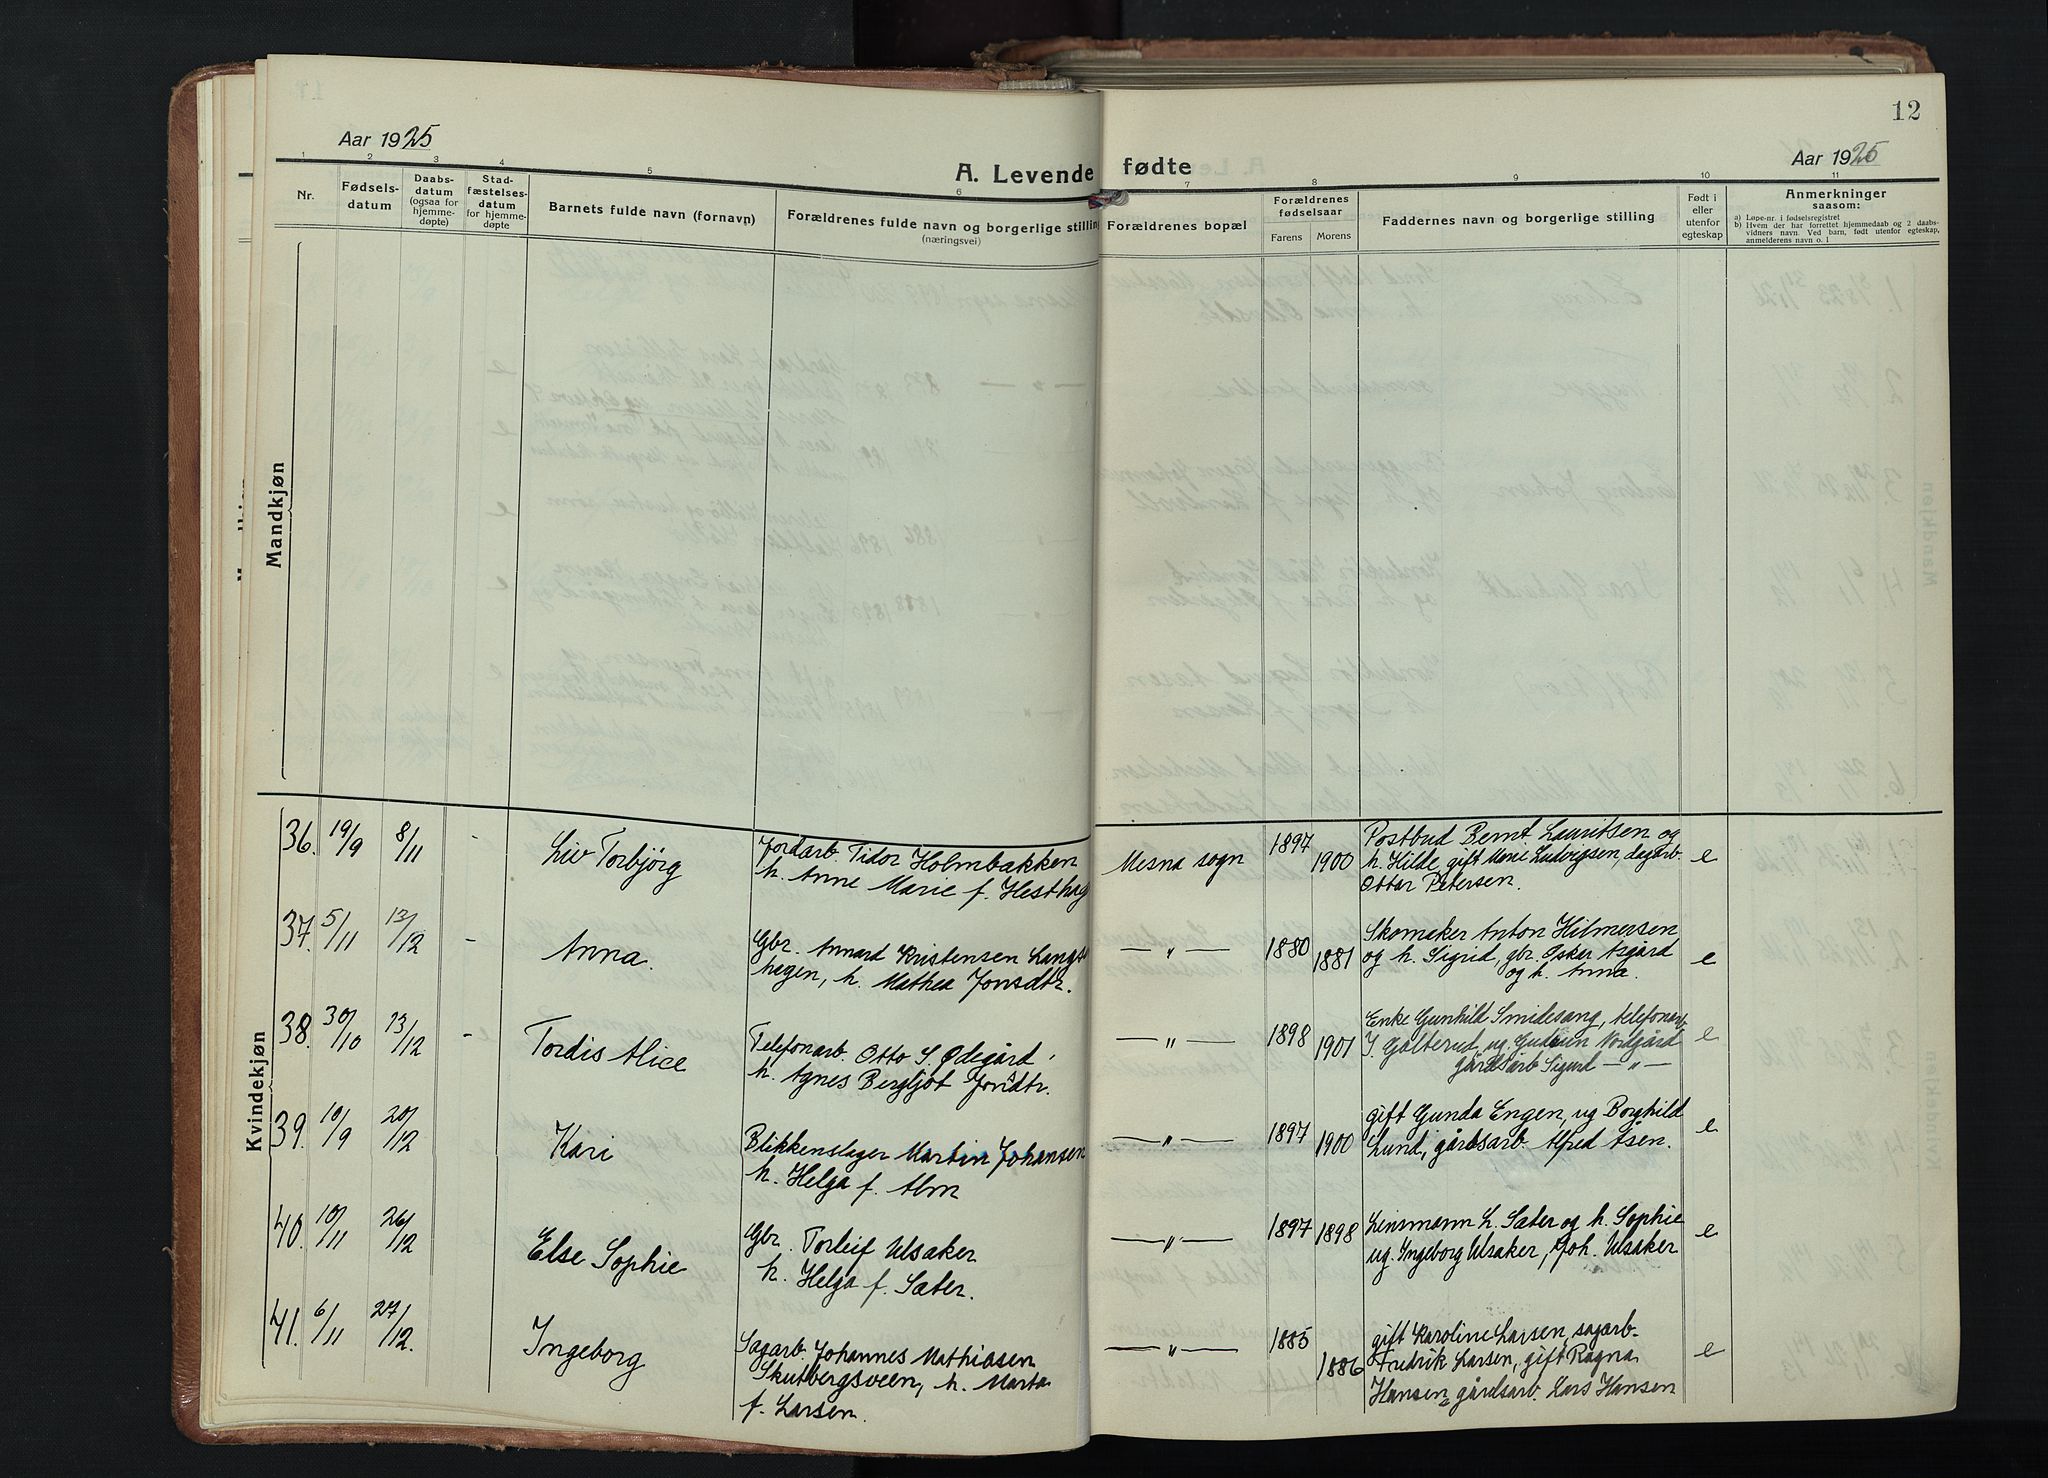 12
Aar 1925
A. Levende fødte
Aar 1925
1 2 3 4 5 6 7 8 9 10 11
Nr.
Fødsels-
datum
Daabs-
datum
(ogsaa for
hjemme-
døpte)
Stad-
fæstelses-
datum
for hjemme-
døpte
Barnets fulde navn (fornavn)
Forældrenes fulde navn og borgerlige stilling
(næringsvei)
Forældrenes bopæl
Forældrenes
fødselsaar
Farens Morens
Faddernes navn og borgerlige stilling
Født i
eller
utenfor
egteskap
Anmerkninger
saasom:
a) Løpe-nr. i fødselsregistret
b) Hvem der har forrettet hjemmedaab og 2 daabs-
vidners navn. Ved barn, født utenfor egteskap,
anmelderens navn o. l
Mandkjøn
Kvindekjøn
36. 19/9 8/11 - Liv Torbjørg
Jordarb. Tidor Holmbakken
h. Anne Marie f. Hesthag
Mesna sogn 1897 1900
Postbud Bernt Lauritsen og
h. Hilde, gift Marie Ludvigsen, dagarb.
Ottar Petersen.
e
37. 5/11 13/12 - Anna.
Gbr. Annard Kristensen Langs-
hagen, h. Mathea Jonsdtr.
— " — 1880 1881
Skomaker Anton Hilmersen
og h. Sigrid, gbr. Oskar Asgård
og h. Anna.
e
38. 30/10 13/12 - Tordis Alice
Telefonarb. Otto S. Ødegård,
h. Agnes Bergljot
— " — 1898 1901
Enke Gunhild Smidesang, telefonarb.
J. Galterud, ug. Gudrun Nordgård
gårdsarb Sigurd — " —
e
39. 10/9 20/12 Kari
Blikkenslager Martin Johansen
h. Helga f. Alm
— " — 1897 1900
gift Gunda Engen, ug Borghild
Lund, gårdsarb. Alfred Åsen.
e
40. 10/11 26/12 Else Sophie
Gbr. Torleif Ulsaker
h. Helga f. Sater.
— " — 1897 1898
Lensmann L. Sater og h. Sophie
ug. Ingeborg Ulsaker, Joh. Ulsaker
e
41. 6/11 27/12. Ingeborg
Sagarb. Johannes Mathiasen
Skutbergsveen, h. Marta
f. Larsen.
— " — 1885 1886
gift Karoline Larsen, sagarb.
Fredrik Larsen, gift Ragna
Hansen, gårdsarb. Lars Hansen
e